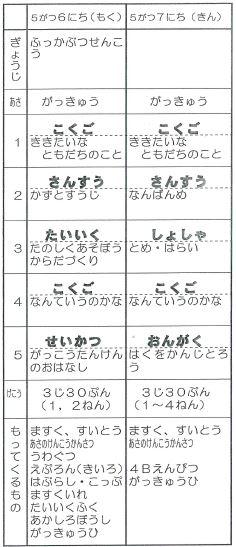 5がつ6にち(もく) 5がつ7にち(きん)
ぎょうじ ふっかぶつせんこ
う
あさ がっきゅう がっきゅう
1 こくご こくご
ききたいな ききたいな
ともだちのこと ともだちのこと
2 さんすう さんすう
かずとすうじ なんばんめ
3 たいいく しょしゃ
たのしくあそぼう とめ・はらい
からだづくり
4 こくご こくご
なんていうのかな なんていうのかな
5 せいかつ おんがく
がっこうたんけん はくをかんじとろ
のおはなし う
げこう 3じ30ぷん 3じ30ぷん
(1,2ねん) (1~4ねん)
もってくるもの ますく、すいとう ますく、すいとう
あさのけんこうかんさつ あさのけんこうかんさつ
うわぐつ
えぷろん(きいろ) 4Bえんぴつ
はぶらし・こっぷ がっきゅうひ
ますくいれ
たいいくふく
あかしろぼうし
がっきゅうひ